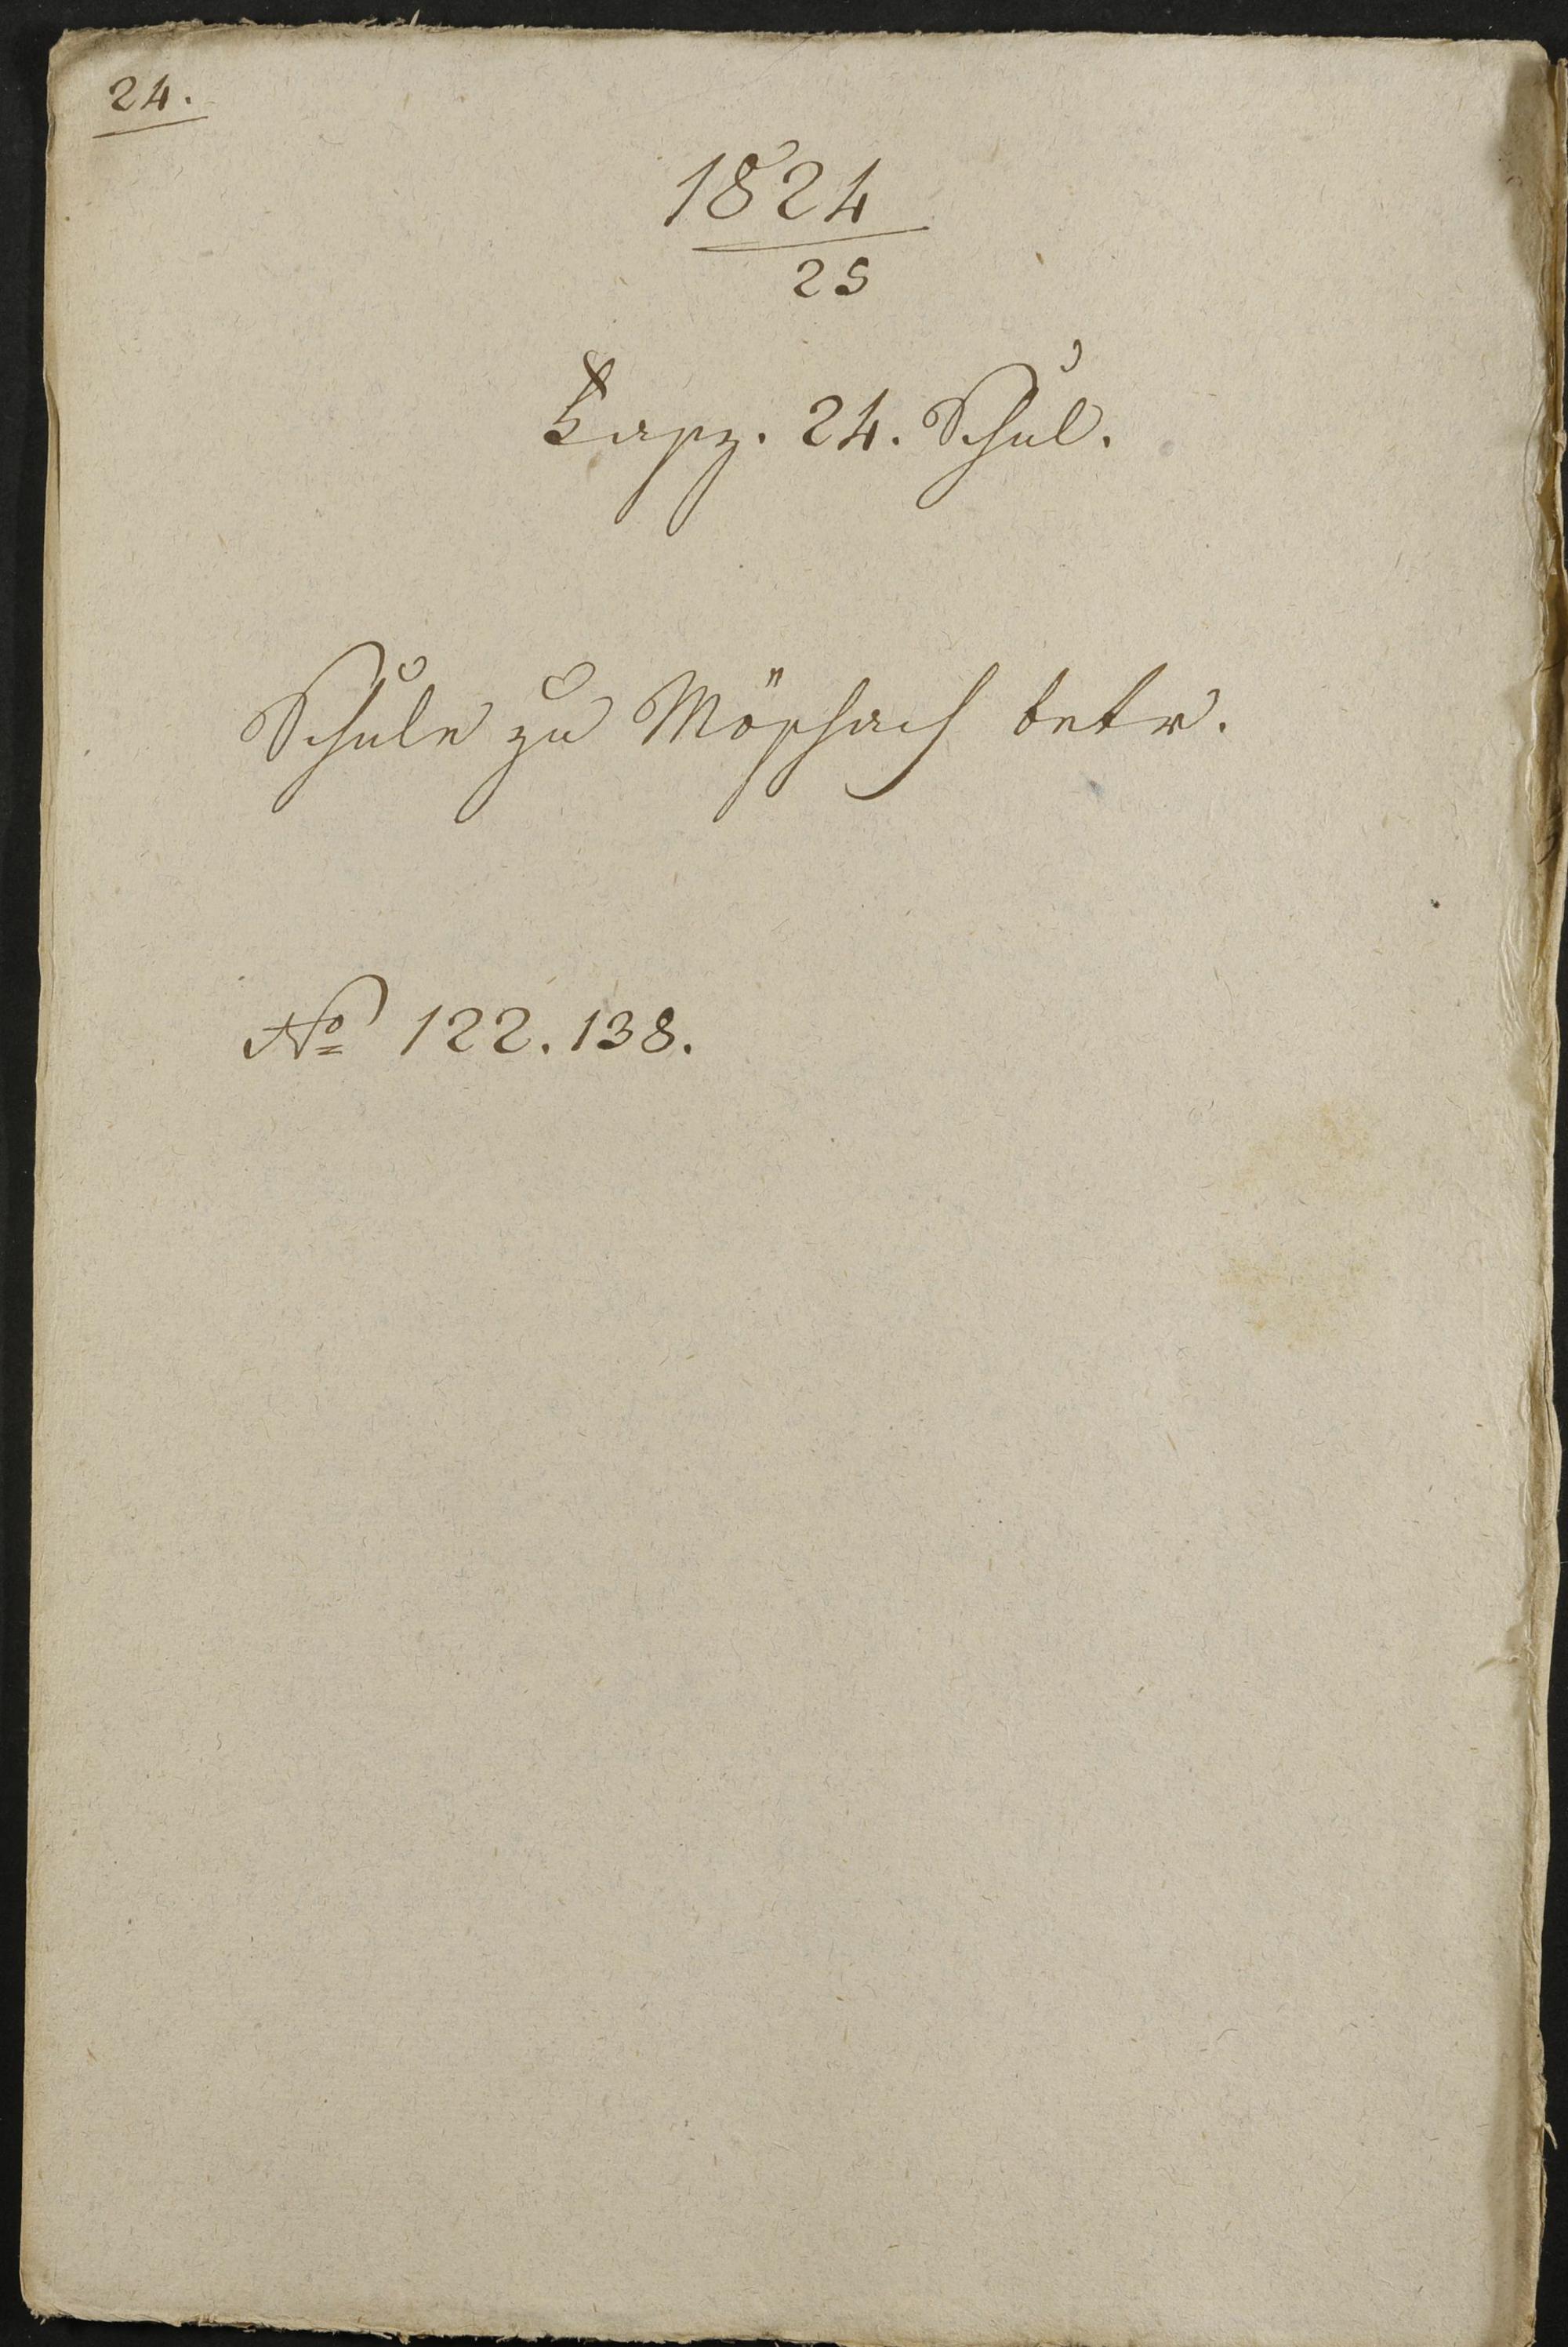 24.
1824
25
Kapz. 24. Schul.
Schule zu betr.
No 122. 138.